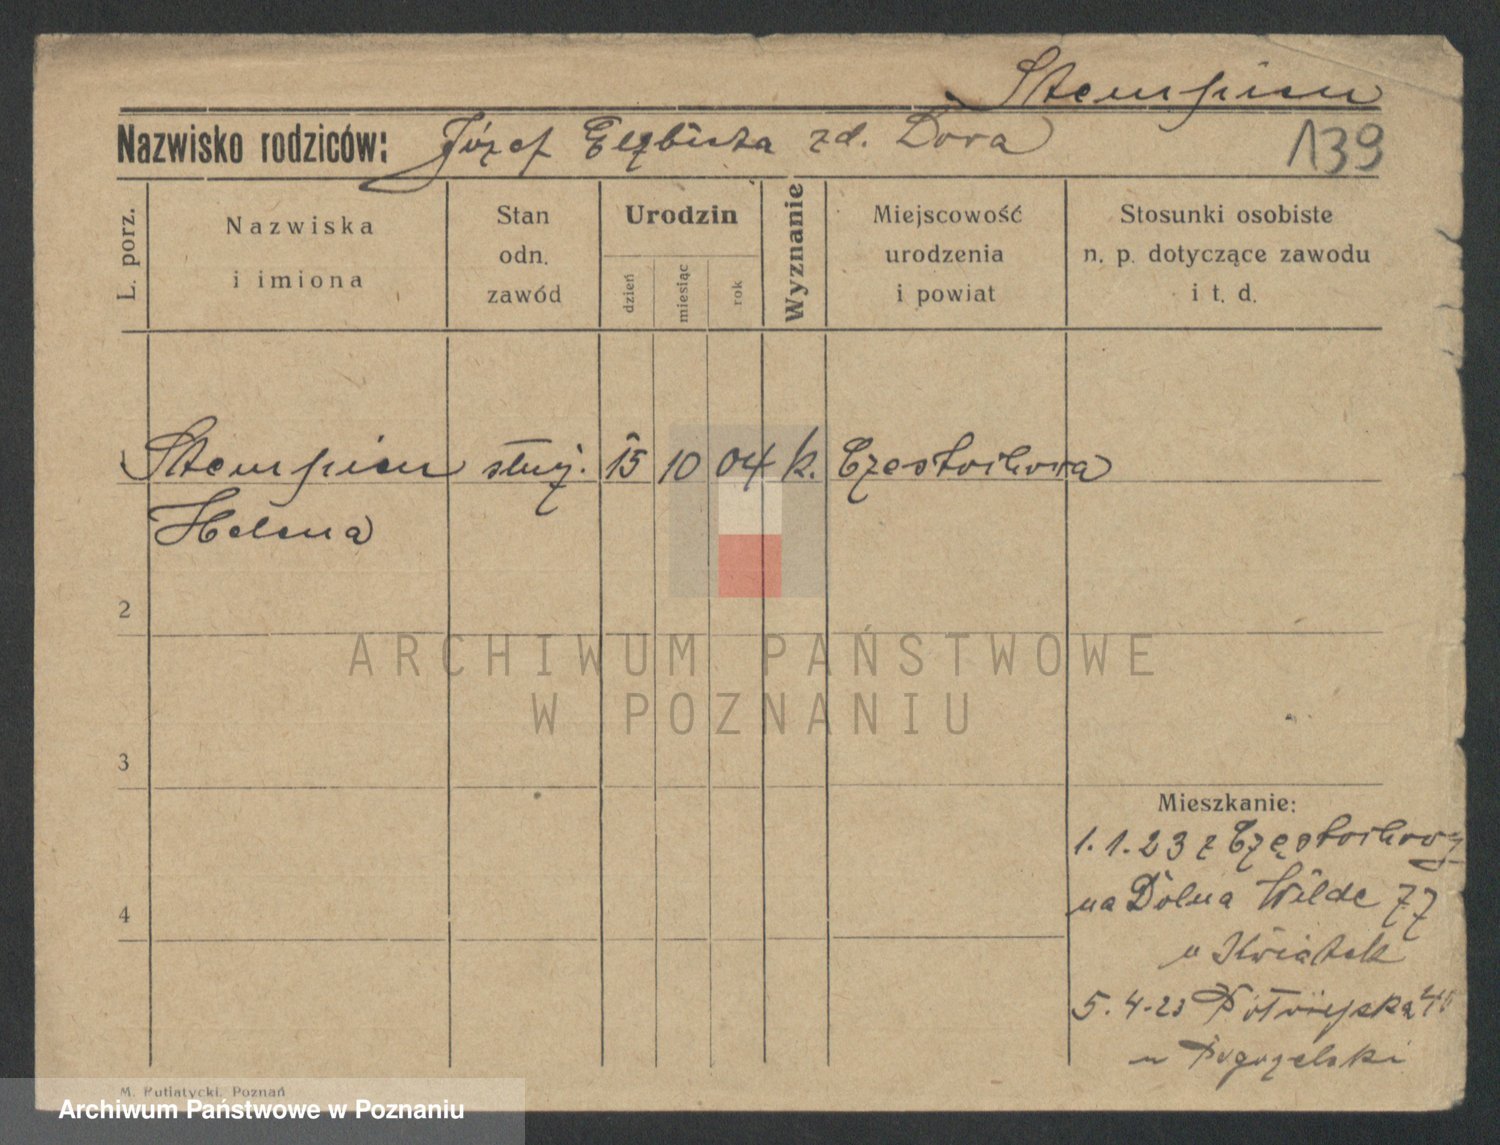 Stempień
Nazwisko rodziców: Józef Elżbieta zd. Dora 139
L. porz.
Nazwiska
i imiona
Stan
odn.
zawód
Urodzin
dzień
miesiąc
rok
Wyznanie
Miejscowość
urodzenia
i powiat
Stosunki osobiste
n. p. dotyczące zawodu
i t. d.
Stempień służ. 15 10 04 k. Częstochowa
Helena
2
3
4
Mieszkanie:
1.1.23 z Częstochowy
na Dolna Wilde 77
u Kwiatek
5.4.23
u Pogorzelski
ARCHIWUM PAŃSTWOWE
W POZNANIU
M. Putiatycki, Poznań
Archiwum Państwowe w Poznaniu